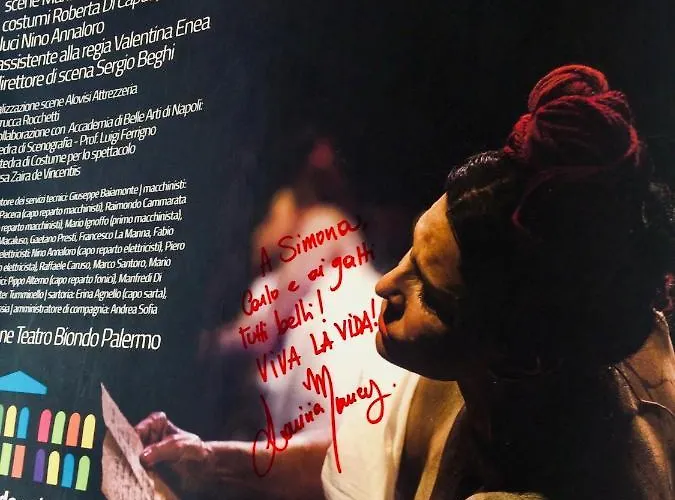 scene
costumi Roberta Di
luci Nino Annaloro
assistente alla regia Valentina Enea
direttore di scena Sergio Beghi
alizzazione scene Alovisi Attrezzeria
rucca Rocchetti
ollaborazione con Accademia di Belle Arti di Napoli:
edra di Scenografia - Prof. Luigi Ferrigno
tedra di Costume per lo spettacolo
sa Zaira de Vincentiis
tore dei servizi tecnici: Giuseppe Baiamonte | macchinisti:
Pacera (capo reparto macchinisti), Raimondo Cammarata
reparto macchinisti), Mario Ignoffo (primo macchinista),
Macaluso, Gaetano Presti, Francesco La Manna, Fabio
elettricisti: Nino Annaloro (capo reparto elettricisti), Piero
o elettricista), Raffaele Caruso, Marco Santoro, Mario
ici: Pippo Alterno (capo reparto fonici), Manfredi Di
ter Tumminello | sartoria: Erina Agnello (capo sarta),
ssia | amministratore di compagnia: Andrea Sofia
ne Teatro Biondo Palermo
A Simona,
Carlo e ai gatti
tutti belli!
VIVA LA VIDA!